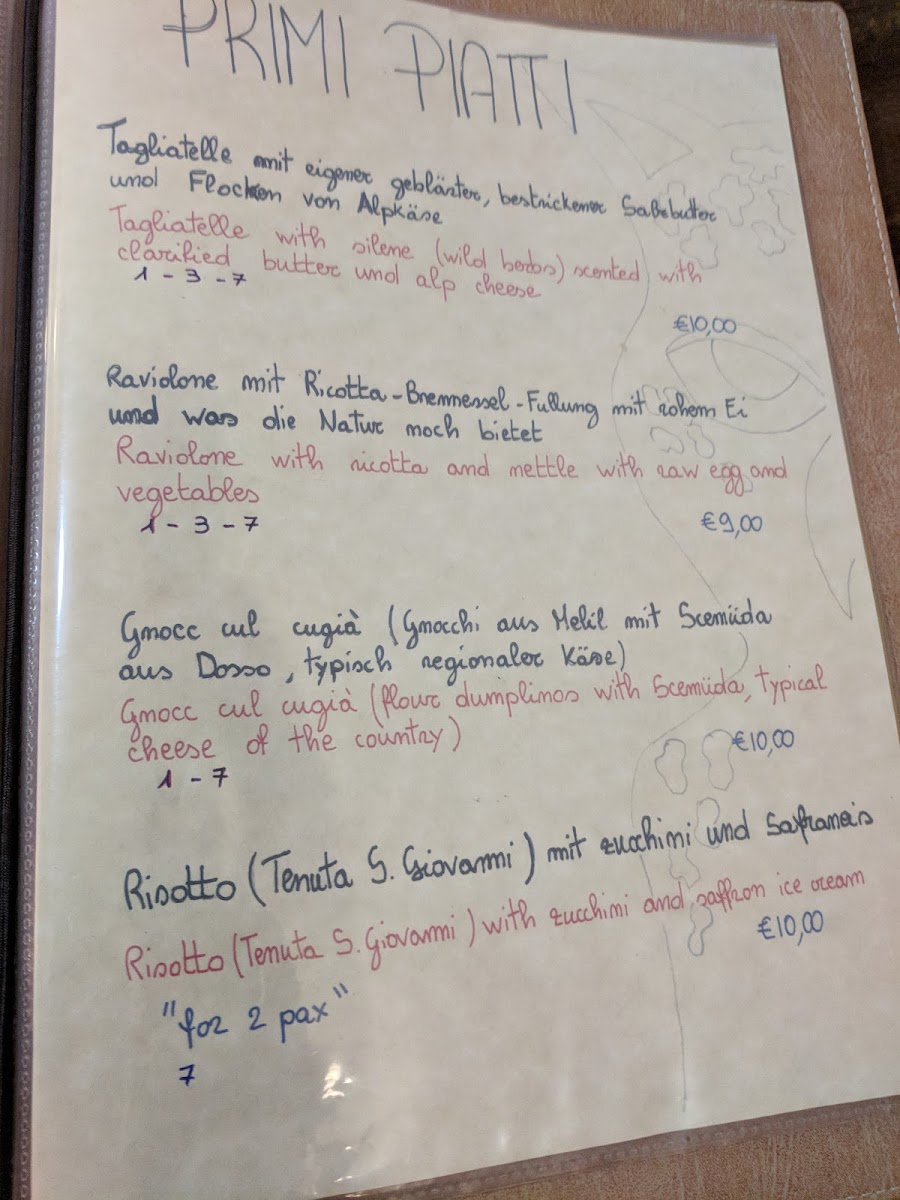 PRIMI PIATTI
Tagliatelle mit eigener gebläster, bestrickener Saßbutter
und Flocken von Alpkäse
Tagliatelle with silene (wild herbs) scented with
clarified butter und alp cheese
1 - 3 - 7
€10,00
Raviolone mit Ricotta - Brennessel - Fullung mit rohem Ei
und was die Natur noch bietet
Raviolone with ricotta and nettle with raw egg and
vegetables
1 - 3 - 7
€9,00
Gnocc cul cugià (Gnocchi aus Mehl mit Scemüda
aus Dosso, typisch regionaler Käse)
Gnocc cul cugià (flour dumplinos with Scemüda, typical
cheese of the country)
€10,00
1 - 7
Risotto (Tenuta S. Giovanni) mit zucchini und Safraneis
Risotto (Tenuta S. Giovanni) with zucchini and saffron ice cream
€10,00
"for 2 pax"
7